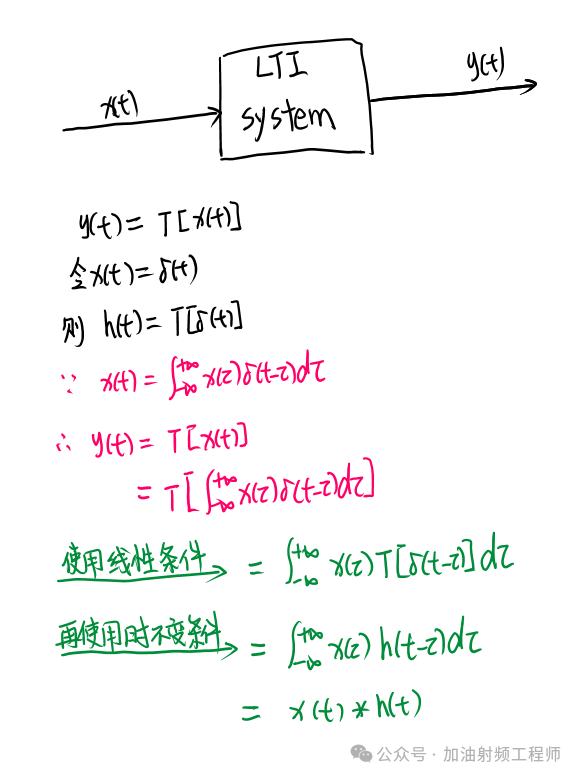 x(t)
LTI
system
y(t)
y(t) = T[x(t)]
令x(t)=δ(t)
则 h(t)= T[δ(t)]
∵ x(t) = ∫_{-∞}^{+∞} x(τ)δ(t-τ)dτ
∴ y(t) = T[x(t)]
= T[∫_{-∞}^{+∞} x(τ)δ(t-τ)dτ]
使用线性条件 → = ∫_{-∞}^{+∞} x(τ)T[δ(t-τ)]dτ
再使用时不变条件 → = ∫_{-∞}^{+∞} x(τ)h(t-τ)dτ
= x(t) * h(t)
公众号 · 加油射频工程师